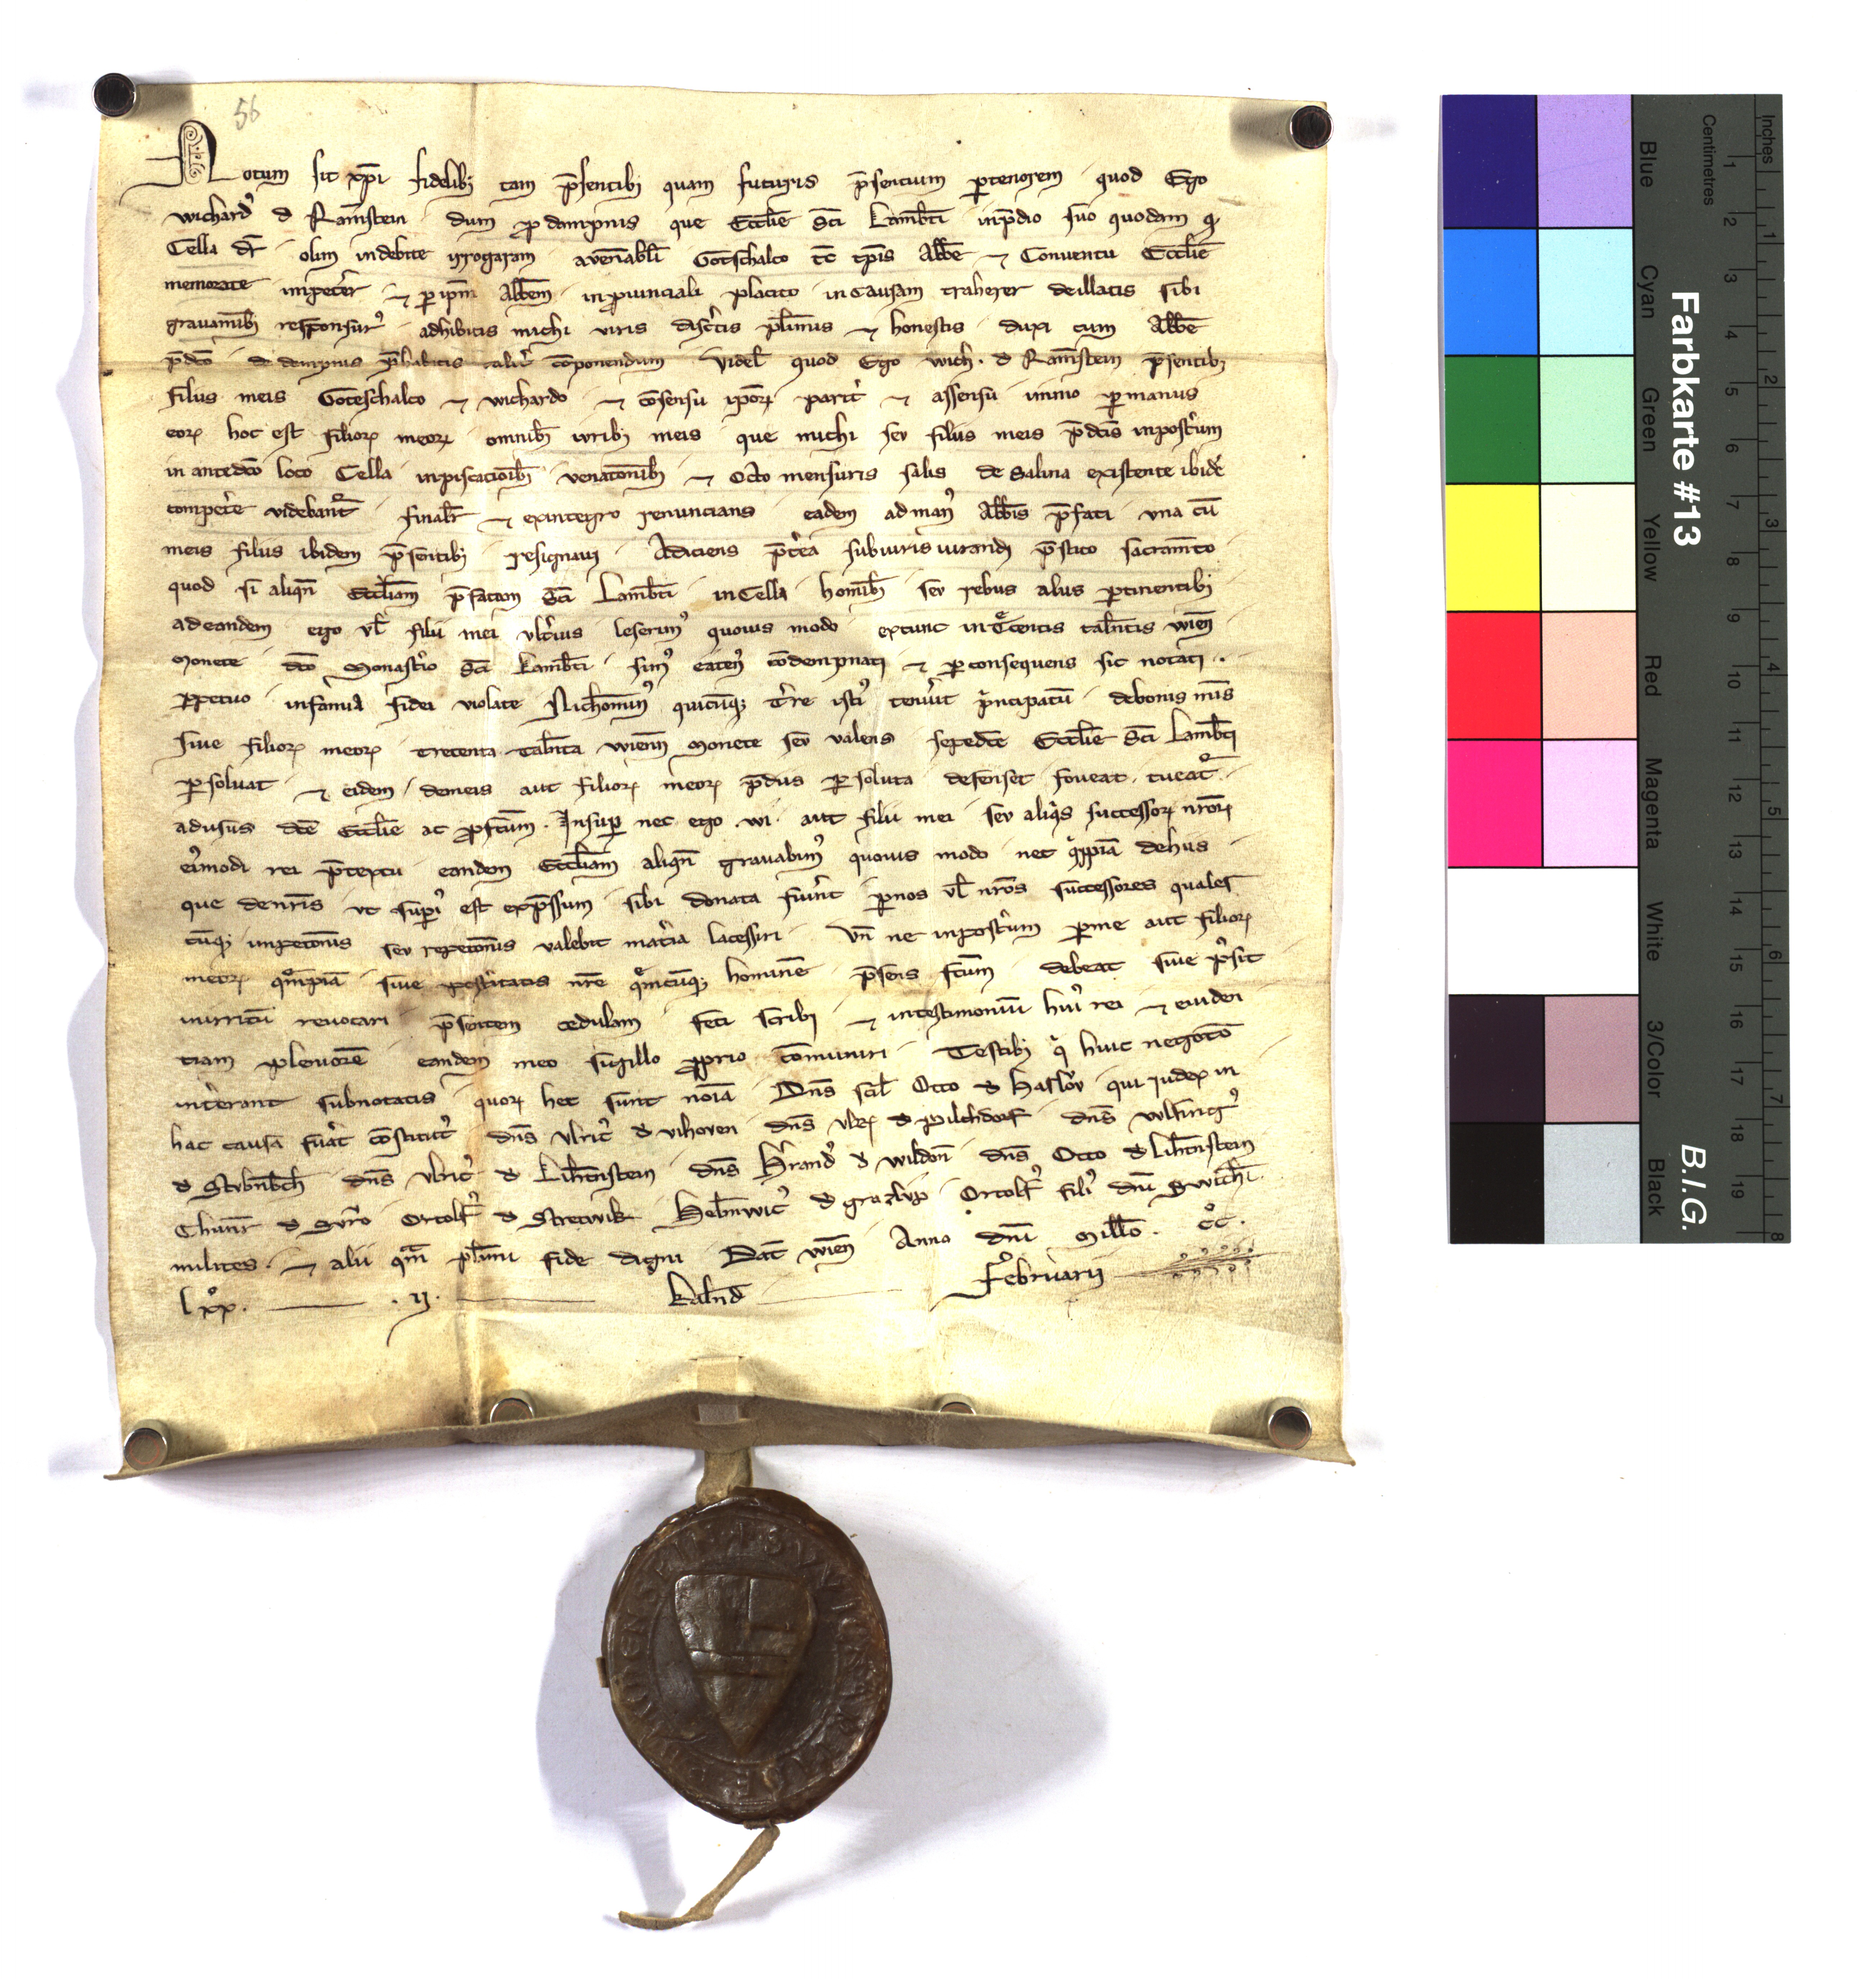 56
Notum sit xp̄i fidelibꝫ tam p̄sentibꝫ quam futuris p̄sentium ꝑtenorem quod Ego
Wichardꝰ d̄ Ram̄stein dum ꝓ dampnis que Eccl̄ie Sc̄i Lamb̄ti inp̄dio suo quodam q̄
Cella dr̄ olim indebite irrogaram aven̄abl̄i Gotschalco tc̄ tp̄is Abb̄e ⁊ Conventu Eccl̄ie
memorate impeter̄ ⁊ ꝑ ip̄m Abb̄em inꝓvinciali placito incausam traherer deillatis sibi
gravam̄ibꝫ responsurꝰ adhibitis michi viris discr̄tis pl̄imis ⁊ honestis duxi cum Abb̄e
p̄dc̄o de dampnis p̄habitis alit̄ cōponendum videl̄ quod Ego Wich. d̄ Ram̄stein p̄sentibꝫ
filiis meis Goteschalco ⁊ Wichardo ⁊ cōsensu ip̄orꝫ parit̄ ⁊ assensu immo ꝑmanus
eorꝫ hoc est filiorꝫ meorꝫ omnibꝫ iuribꝫ meis que michi sev filiis meis p̄dc̄is inpost̄um
in antedc̄o loco Cella inpiscatioībꝫ venatonibꝫ ⁊ Octo mensuris salis de Salina existente ibidē
compet̄e videbant̄ finalr̄ ⁊ exintegro renuncians eadem ad manꝰ Abb̄is p̄fati una cū
meis filiis ibidem p̄sentibꝫ resignavi Adiciens p̄t̄ea subiurisiurandi p̄stito sacram̄to
quod si aliqn̄ Eccl̄iam p̄fatam Sc̄i Lamb̄ti inCella homībꝫ sev rebus aliis ꝑtinentibꝫ
adeandem ego vl̄ filii mei ult̄ius leserimꝰ quovis modo extunc intͨcentis tal̄ntis Wien̄
Monete dc̄o Monast̄io Sc̄i Lamb̄ti simꝰ eatenꝰ cōdempnati ⁊ ꝑconsequens sic notati
ꝑpetuo infamia fidei violate Nichominꝰ quicūqꝫ t̄re istiꝰ tenu̇it p̄ncipatū debonis meis
sive filiorꝫ meorꝫ trecenta tal̄nta Wienn̄ Monete sev valens sepedc̄e Eccl̄ie Sc̄i Lamb̄ti
ꝑsolvat ⁊ eidem demeis aut filiorꝫ meorꝫ p̄diis ꝑsoluta defenset foveat tueat̄
adusus dc̄e Eccl̄ie ac ꝓfc̄um. Insuꝑ nec ego .wi. aut filii mei sev aliqͥs successorꝫ nr̄orꝫ
eiꝰmodi rei p̄textu eandem Eccl̄iam aliqn̄ gravabimꝰ quovis modo nec qͥppiā dehiis
que denr̄is ut suꝑiꝰ est exp̄ssum sibi donata fueriıt ꝑnos vl̄ nr̄os successores quales
cūqꝫ impetonis sev repetonis valebit mat̄ia lacessiri Vn̄ ne inpost̄um ꝑme aut filiorꝫ
meorꝫ quēpiā sive post̄itatis nr̄e quēcūqꝫ hominē p̄sens fc̄um debeat sive possit
inirritū revocari p̄sentem cedulam feci scribi ⁊ intestimoniū huiꝰ rei ⁊ eviden
tiam pleniorē eandem meo sigillo ꝓprio cōmuniri Testibꝫ qͥ huic negoto
int̄erant subnotatis quorꝫ hec sunt noīa Dn̄s scil̄ Otto d̄ Haslov̇ qui iudex in
hac causa fu̇at cōstitutꝰ dn̄s Ulricꝰ d̄ vihoven dn̄s Ulrꝫ d̄ pilchdorf dn̄s Wlfingꝰ
d̄ Stvbn̄bch̄ dn̄s Ulricꝰ d̄ Lih̄tnstein dn̄s H̄randꝰ d̄ Wildon̄ dn̄s Otto d̄ Lih̄tnstein
Chunr̄ d̄ Svr̄o Ortolfꝰ d̄ Stretwik Helmwicꝰ d̄ grazlvp Ortolfꝰ filiꝰ dn̄i Swich̄i
milites ⁊ alii qm̄ pl̄imi fide digni Dat̄ Wien̄ Anno dn̄i Mill̄o. cͦc.
lxͦx. .ij. Kal̄nd Februarii
Farbkarte #13
B.I.G.
Inches
Centimetres
Blue
Cyan
Green
Yellow
Red
Magenta
White
3/Color
Black
1 2 3 4 5 6 7 8 9 10 11 12 13 14 15 16 17 18 19
1 2 3 4 5 6 7 8